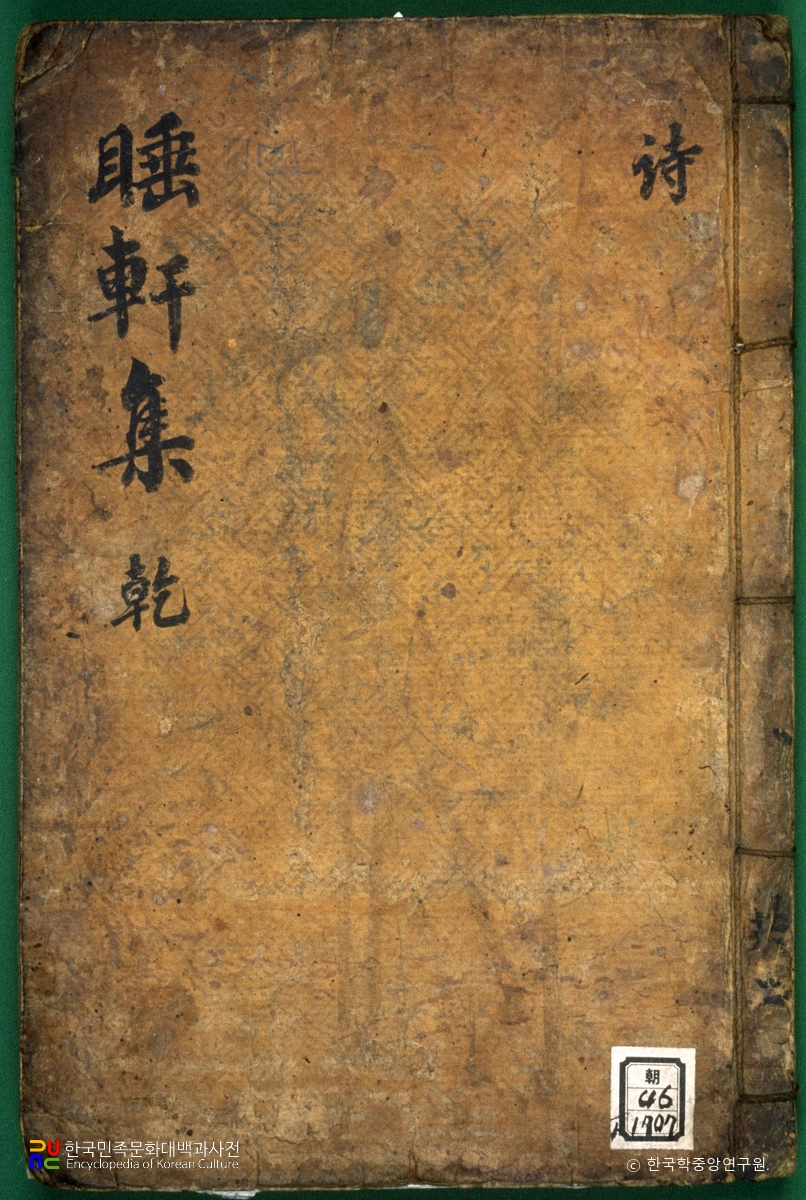 詩
睡軒集 乾
朝
46
1707
한국민족문화대백과사전
Encyclopedia of Korean Culture
© 한국학중앙연구원.